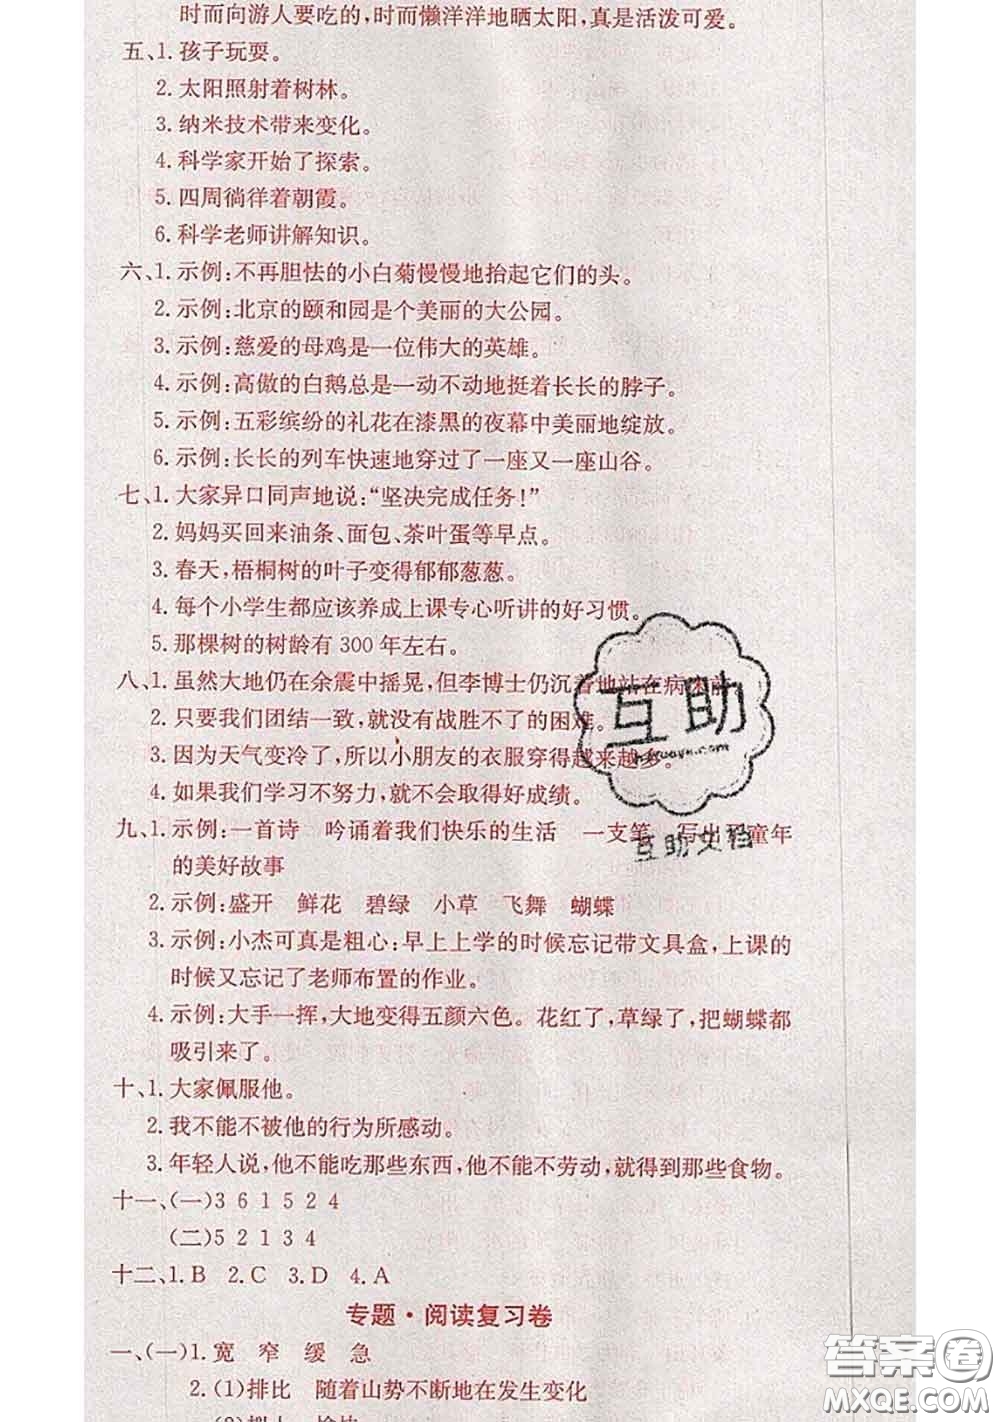 时而向游人要吃的,时而懒洋洋地晒太阳,真是活泼可爱。
五、1. 孩子玩耍。
2. 太阳照射着树林。
3. 纳米技术带来变化。
4. 科学家开始了探索。
5. 四周徜徉着朝霞。
6. 科学老师讲解知识。
六、1. 示例:不再胆怯的小白菊慢慢地抬起它们的头。
2. 示例:北京的颐和园是个美丽的大公园。
3. 示例:慈爱的母鸡是一位伟大的英雄。
4. 示例:高傲的白鹅总是一动不动地挺着长长的脖子。
5. 示例:五彩缤纷的礼花在漆黑的夜幕中美丽地绽放。
6. 示例:长长的列车快速地穿过了一座又一座山谷。
七、1. 大家异口同声地说:“坚决完成任务!”
2. 妈妈买回来油条、面包、茶叶蛋等早点。
3. 春天,梧桐树的叶子变得郁郁葱葱。
4. 每个小学生都应该养成上课专心听讲的好习惯。
5. 那棵树的树龄有 300 年左右。
八、1. 虽然大地仍在余震中摇晃,但李博士仍沉着地站在病床前
2. 只要我们团结一致,就没有战胜不了的困难。
3. 因为天气变冷了,所以小朋友的衣服穿得越来越多。
4. 如果我们学习不努力,就不会取得好成绩。
九、1. 示例:一首诗 吟诵着我们快乐的生活 一支笔 写出了童年
的美好故事
2. 示例:盛开 鲜花 碧绿 小草 飞舞 蝴蝶
3. 示例:小杰可真是粗心:早上上学的时候忘记带文具盒,上课的
时候又忘记了老师布置的作业。
4. 示例:大手一挥,大地变得五颜六色。花红了,草绿了,把蝴蝶都
吸引来了。
十、1. 大家佩服他。
2. 我不能不被他的行为所感动。
3. 年轻人说,他不能吃那些东西,他不能不劳动,就得到那些食物。
十一、(一)3 6 1 5 2 4
(二)5 2 1 3 4
十二、1. B 2. C 3. D 4. A
专题·阅读复习卷
一、(一)1. 宽 窄 缓 急
2. (1)排比 随着山势不断地在发生变化
(2)拟人 愉快
互助
互助文档
答案圈
MXQE.COM